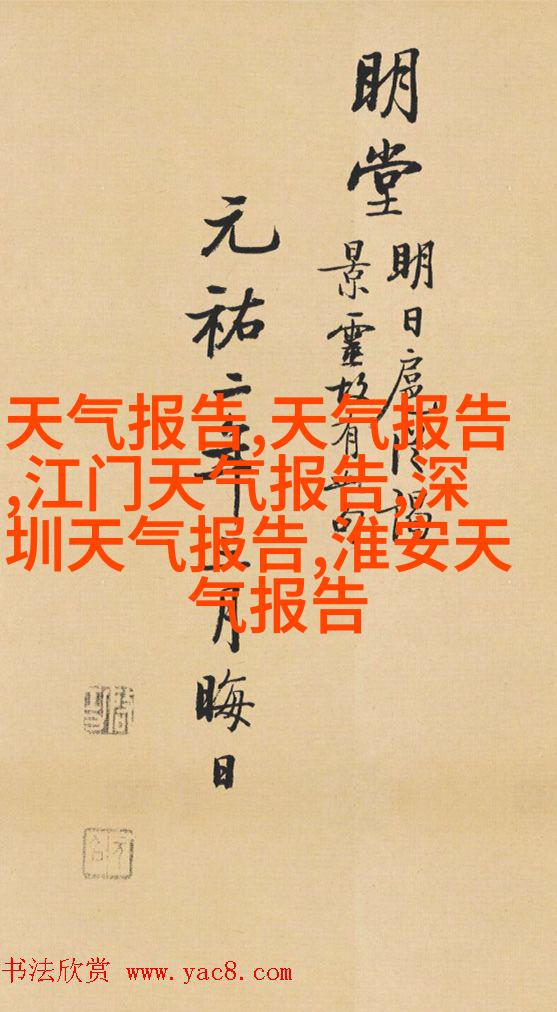 明堂
明日扈從謁
景靈故有此句
元祐二年月晦日
天气报告,天气报告
,江门天气报告,深
圳天气报告,淮安天
气报告
书法欣赏 www.yac8.com